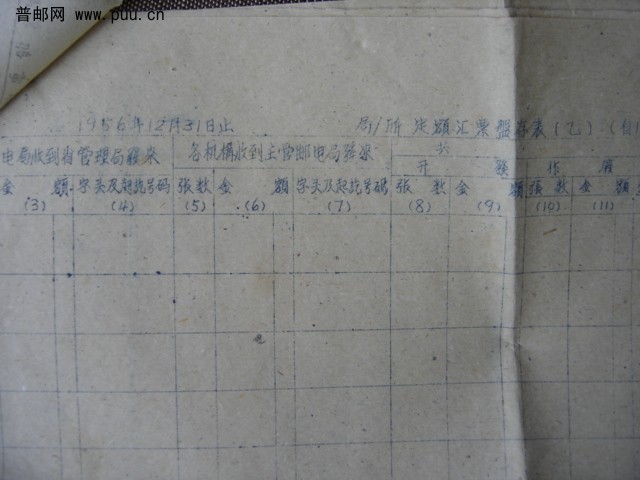 普邮网 www.puu.cn
1956年12月31日止 局/所 定额汇票盘存表(乙)
电局收到省管理局 各机构收到主管邮电局
开 发 作 废
金 额 字头及起讫号码 张数 金 额 字头及起讫号码 张数 金 额 张数 金 额
(3) (4) (5) (6) (7) (8) (9) (10) (11)